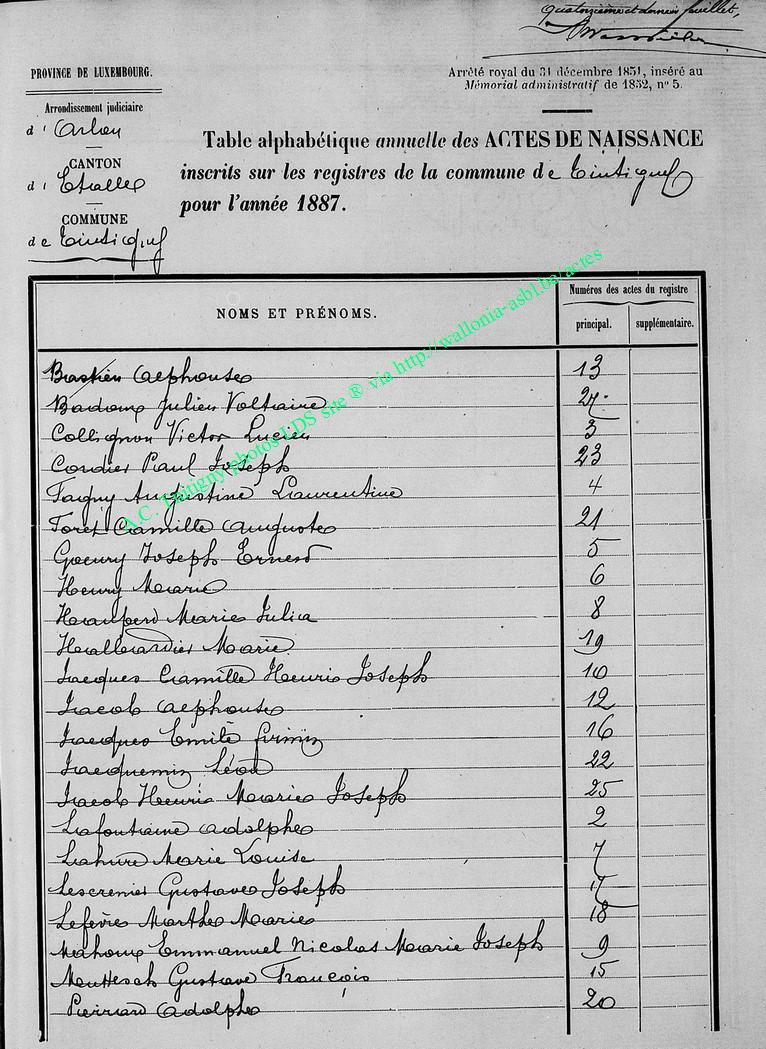 Quatorzième et dernier feuillet,
PROVINCE DE LUXEMBOURG.
Arrêté royal du 31 décembre 1851, inséré au
Mémorial administratif de 1852, n° 5.
Arrondissement judiciaire
d'Arlon
CANTON
d'Etalle
COMMUNE
de Tintigny
Table alphabétique annuelle des ACTES DE NAISSANCE
inscrits sur les registres de la commune de Tintigny
pour l'année 1887.
NOMS ET PRÉNOMS.
Numéros des actes du registre
principal. supplémentaire.
Bastien Alphonse 13
Badoux Julien Voltaire 24.
Collignon Victor Lucien 3
Cordier Paul Joseph 23
Fagny Augustine Laurentine 4
Foret Camille Auguste 21
Goeury Joseph Ernest 5
Henry Marie 6
Marie Julia 8
Hallardier Marie 19
Jacques Camille Henri Joseph 10
Jacob Alphonse 12
Jacques Emile Firmin 16
Jacquemin Léon 22
Jacob Henri Marie Joseph 25
Lafontaine Adolphe 2
Lahure Marie Louise 7
Lescrenier Gustave Joseph 17
Lefèvre Marthe Marie 18
Mahoux Emmanuel Nicolas Marie Joseph 9
Gustave François 15
Pierrard Adolphe 20
A.C. Tintigny photos LDS site ® via http://wallonia-asbl.be/actes